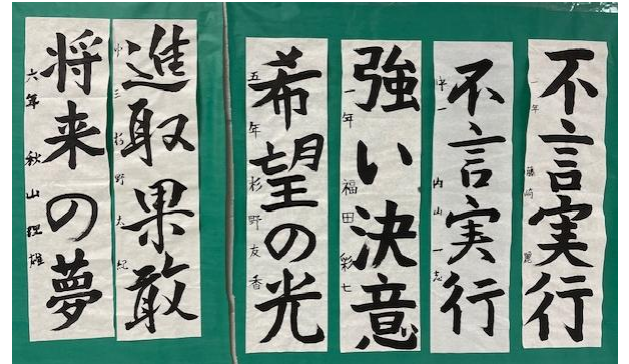 不言実行
一年 藤崎
不言実行
中一 内山一志
強い決意
一年 福田彩七
希望の光
五年 杉野友香
進取果敢
中三 杉野大紀
将来の夢
六年 秋山理雄